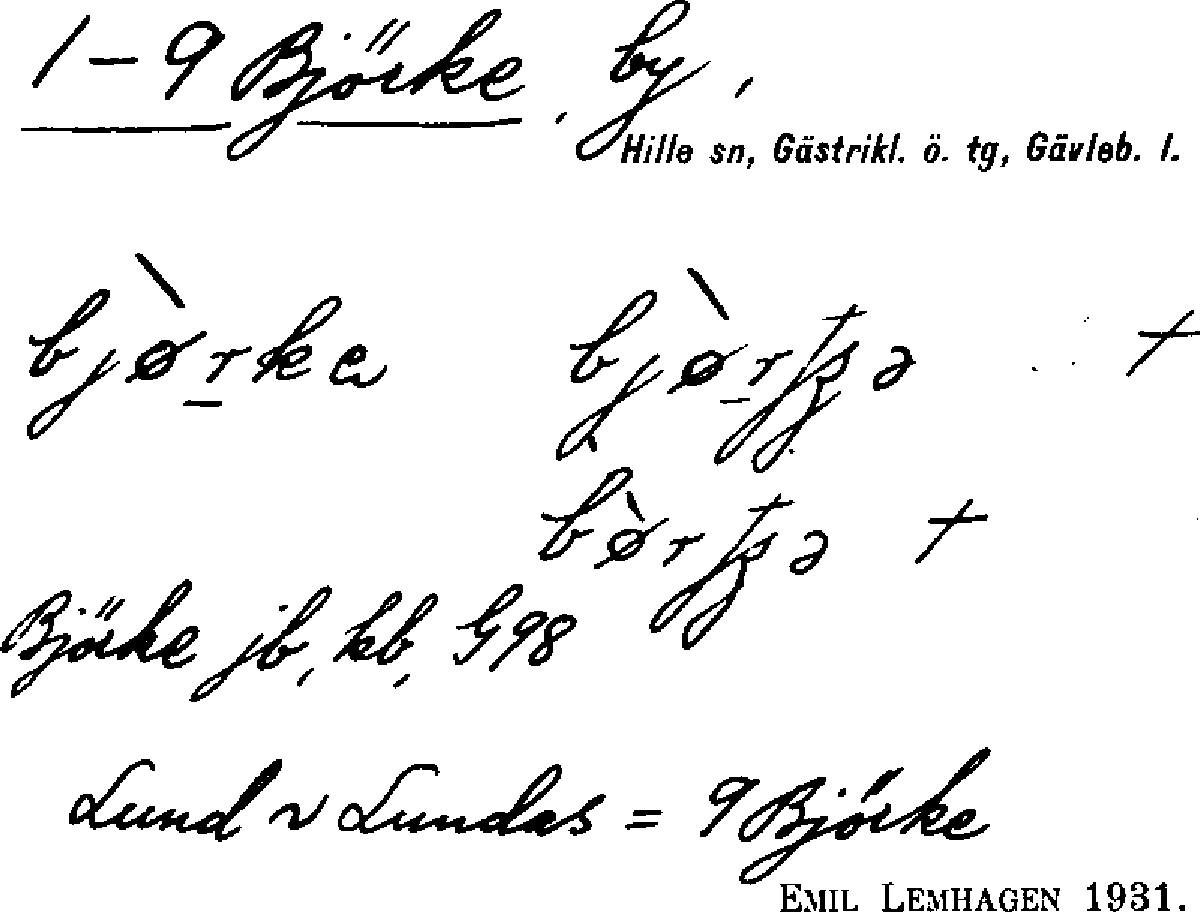 1-9 Björke, by,
Hille sn, Gästrikl. ö. tg, Gävleb. l.
bjø̀r̲ke bjø̀r̲ʈʂə +
bø̀rʈʂə +
Björke jb, kb, G98
Lund ~ Lundas = 9 Björke
EMIL LEMHAGEN 1931.